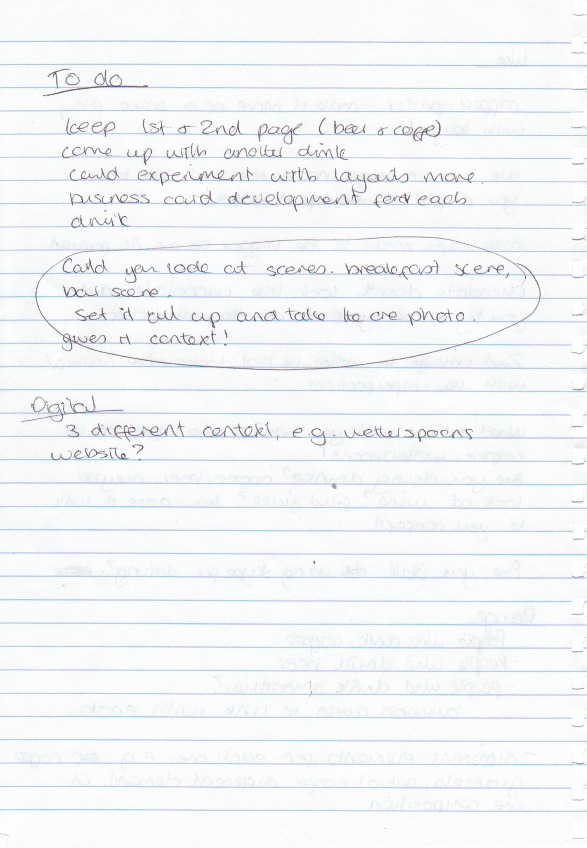 To do
keep 1st & 2nd page (beer & coffee)
come up with another drink
could experiment with layouts more.
business card development for each
drink
Could you look at scenes. breakfast scene,
bar scene.
Set it all up and take the one photo.
gives it context!
Digital
3 different context, e.g. wetherspoons
website?